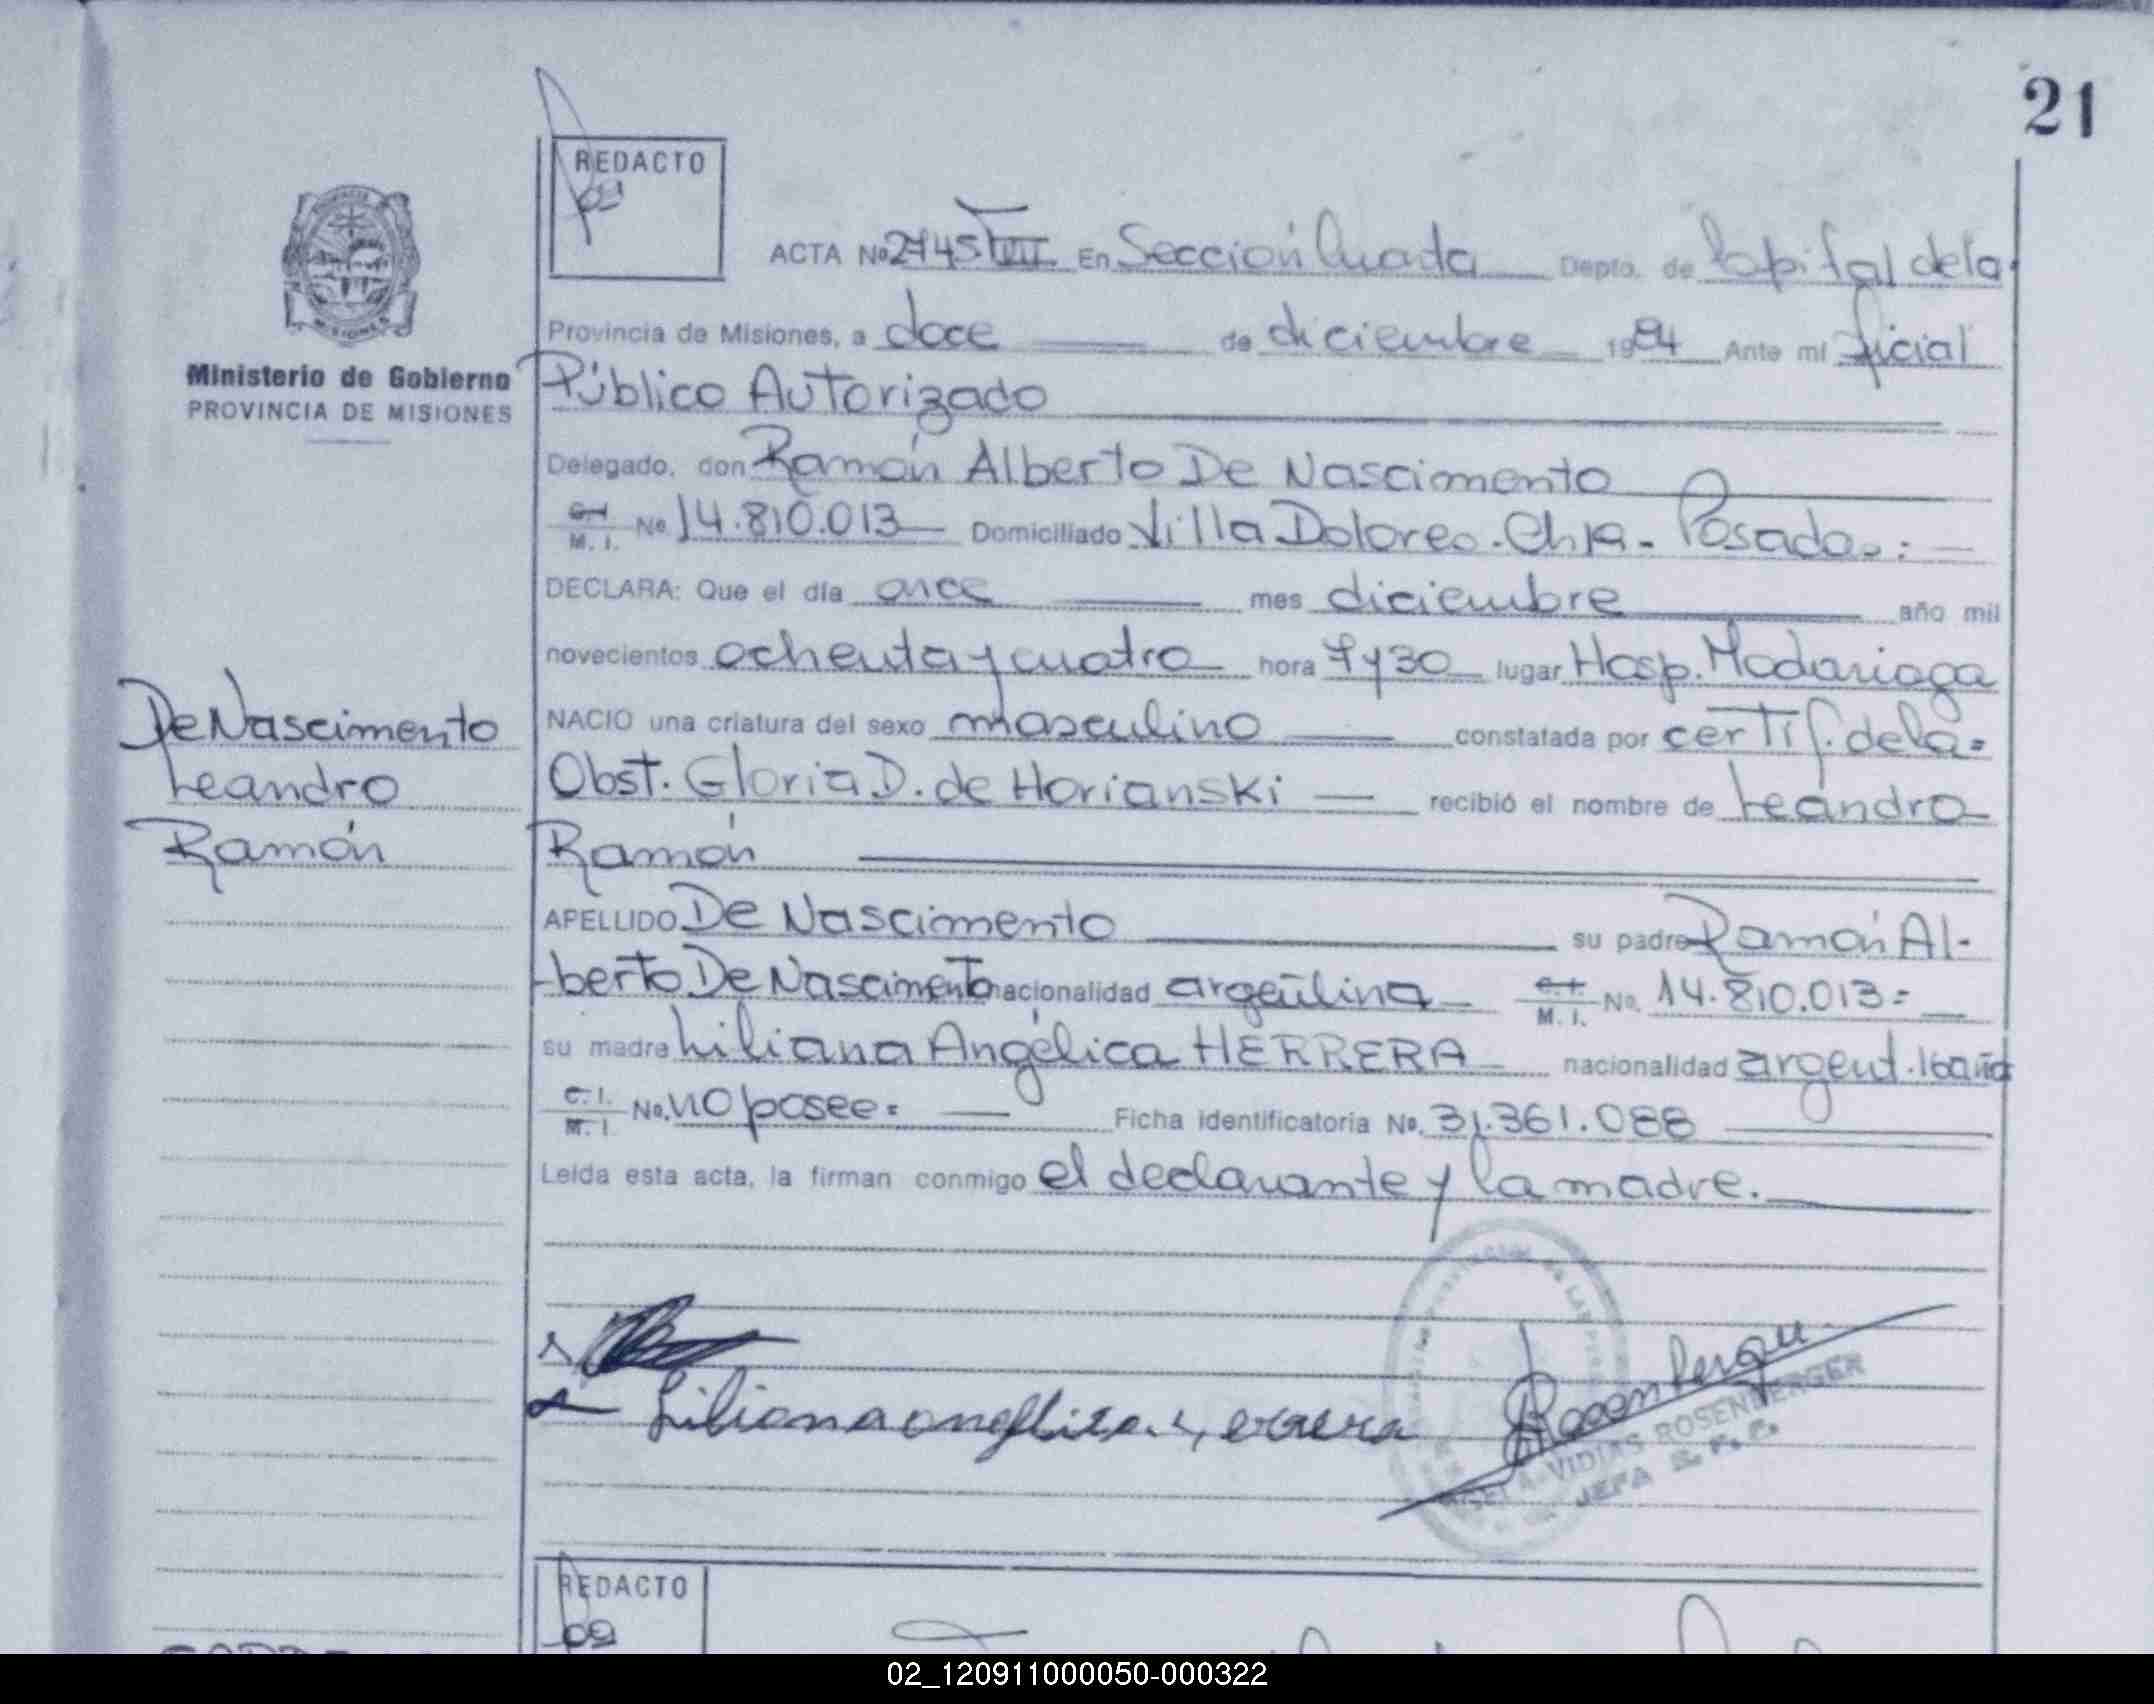 21
REDACTO
ACTA Nº 2745 VIII En Sección Cuarta Depto. de Capital de la
Provincia de Misiones, a doce de diciembre 1984 Ante mí Oficial
Ministerio de Gobierno
PROVINCIA DE MISIONES
Público Autorizado
Delegado, don Ramón Alberto De Nascimento
C.I. M. I. Nº 14.810.013 Domiciliado Villa Dolores. Posadas.
DECLARA: Que el día once mes diciembre año mil
novecientos ochenta y cuatro hora 7 y 30 lugar Hosp. Madariaga
De Nascimento
Leandro
Ramón
NACIO una criatura del sexo masculino constatada por certif. de la=
Obst. Gloria D. de Horianski recibió el nombre de Leandro
Ramón
APELLIDO De Nascimento su padre Ramón Al-
-berto De Nascimento nacionalidad argentina C.I. M. I. Nº. 14.810.013=
su madre Liliana Angélica HERRERA nacionalidad argent. 16 años
C. I. M. I. No. no posee= Ficha identificatoria Nº. 31.361.088
Leída esta acta, la firman conmigo el declarante y la madre.
Rosenberger
VIDIAS ROSENBERGER
JEFA
REDACTO
02_120911000050-000322